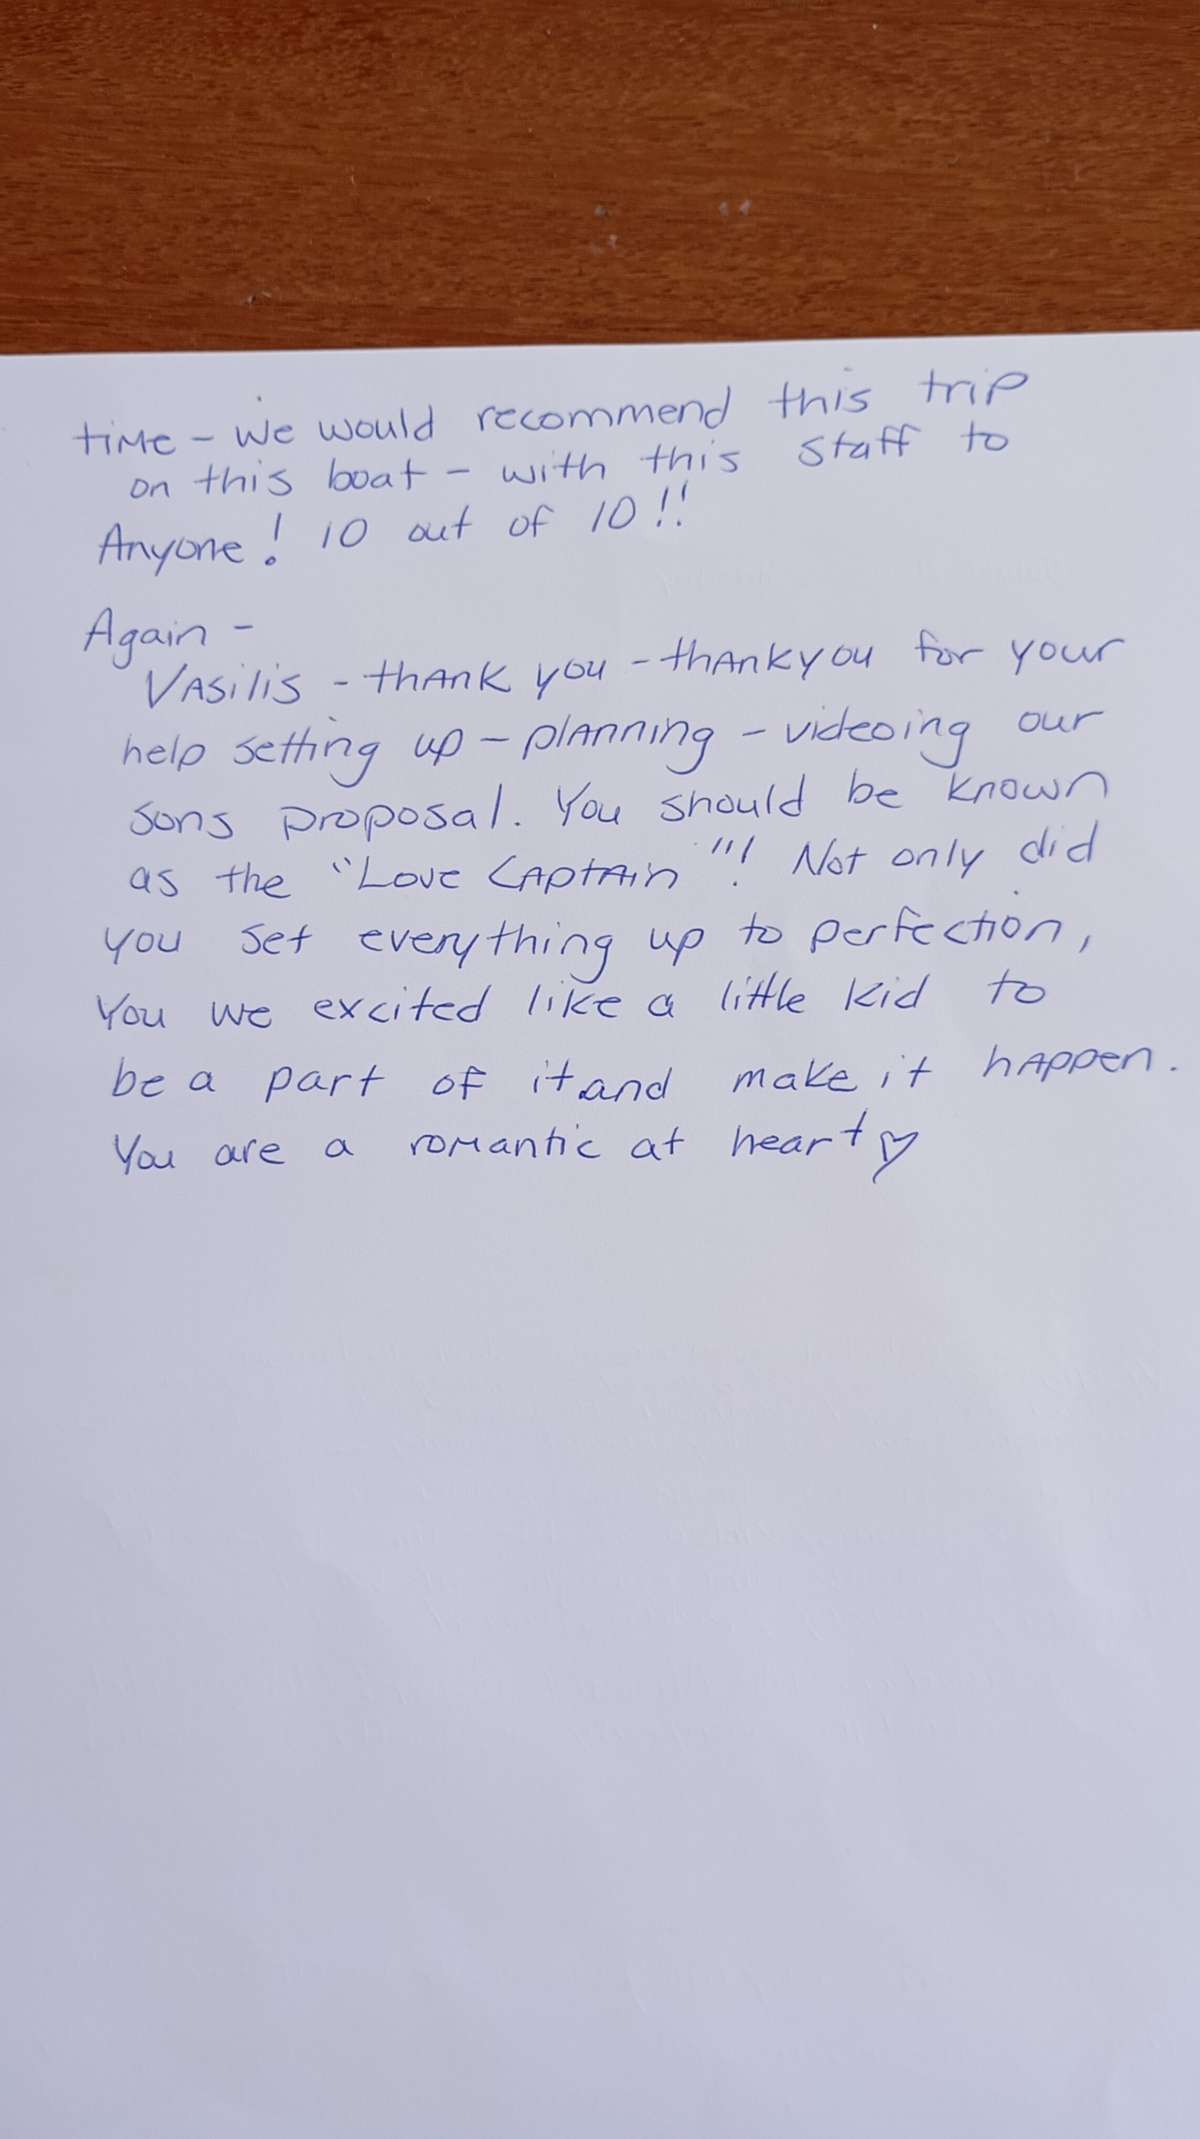 time - We would recommend this trip
on this boat - with this staff to
Anyone! 10 out of 10!!
Again -
Vasilis - thank you - thankyou for your
help setting up - planning - videoing our
sons proposal. You should be known
as the "Love Captain"! Not only did
you set everything up to perfection,
You we excited like a little kid to
be a part of it and make it happen.
You are a romantic at heart ♡